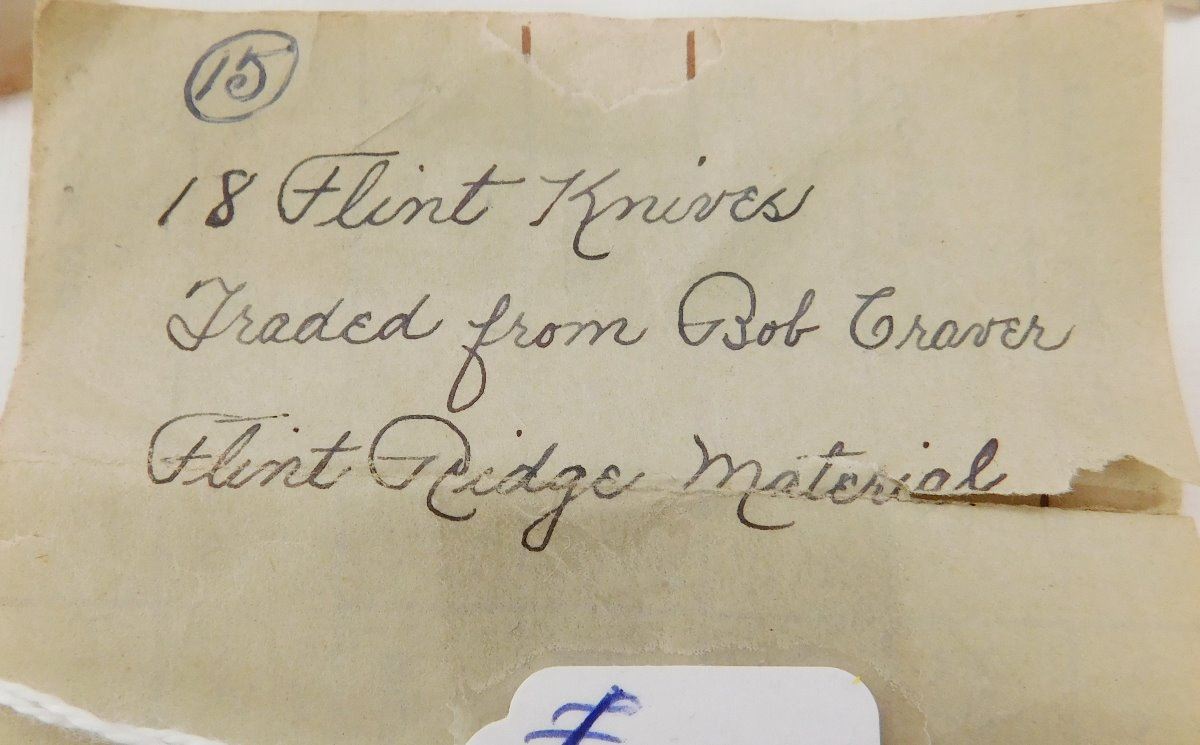 15
18 Flint Knives
Traded from Bob Craver
Flint Ridge Material